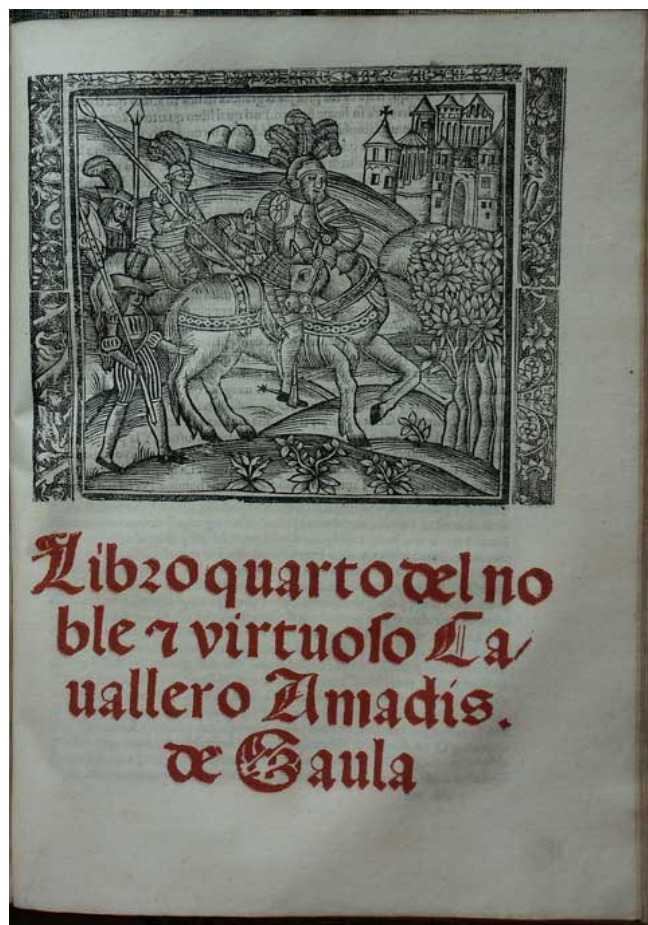 Libro quarto del no
ble ⁊ virtuoſo Ca/
uallero Amadis.
de Gaula